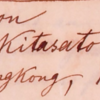 on
Kitasato
ngkong,